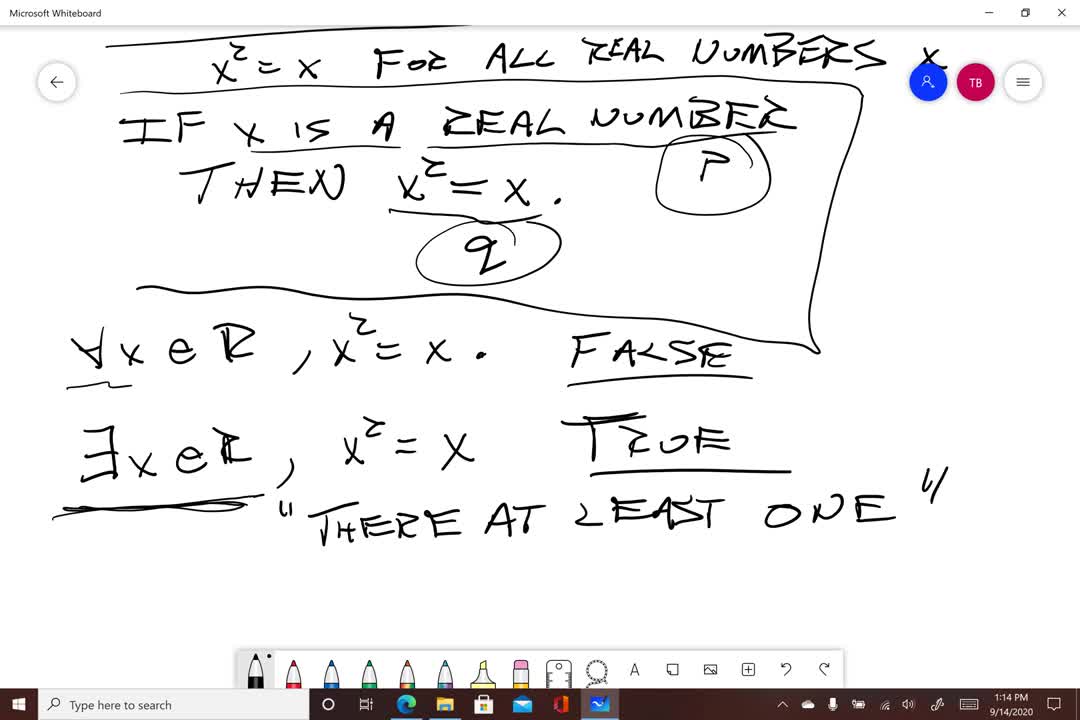 Microsoft Whiteboard
x² = x FOR ALL REAL NUMBERS x
TB
IF x IS A REAL NUMBER
P
THEN x² = x.
q
∀x ∈ ℝ, x² = x. FALSE
∃x ∈ ℝ, x² = x TRUE
"THERE AT LEAST ONE"
A
Type here to search
1:14 PM
9/14/2020